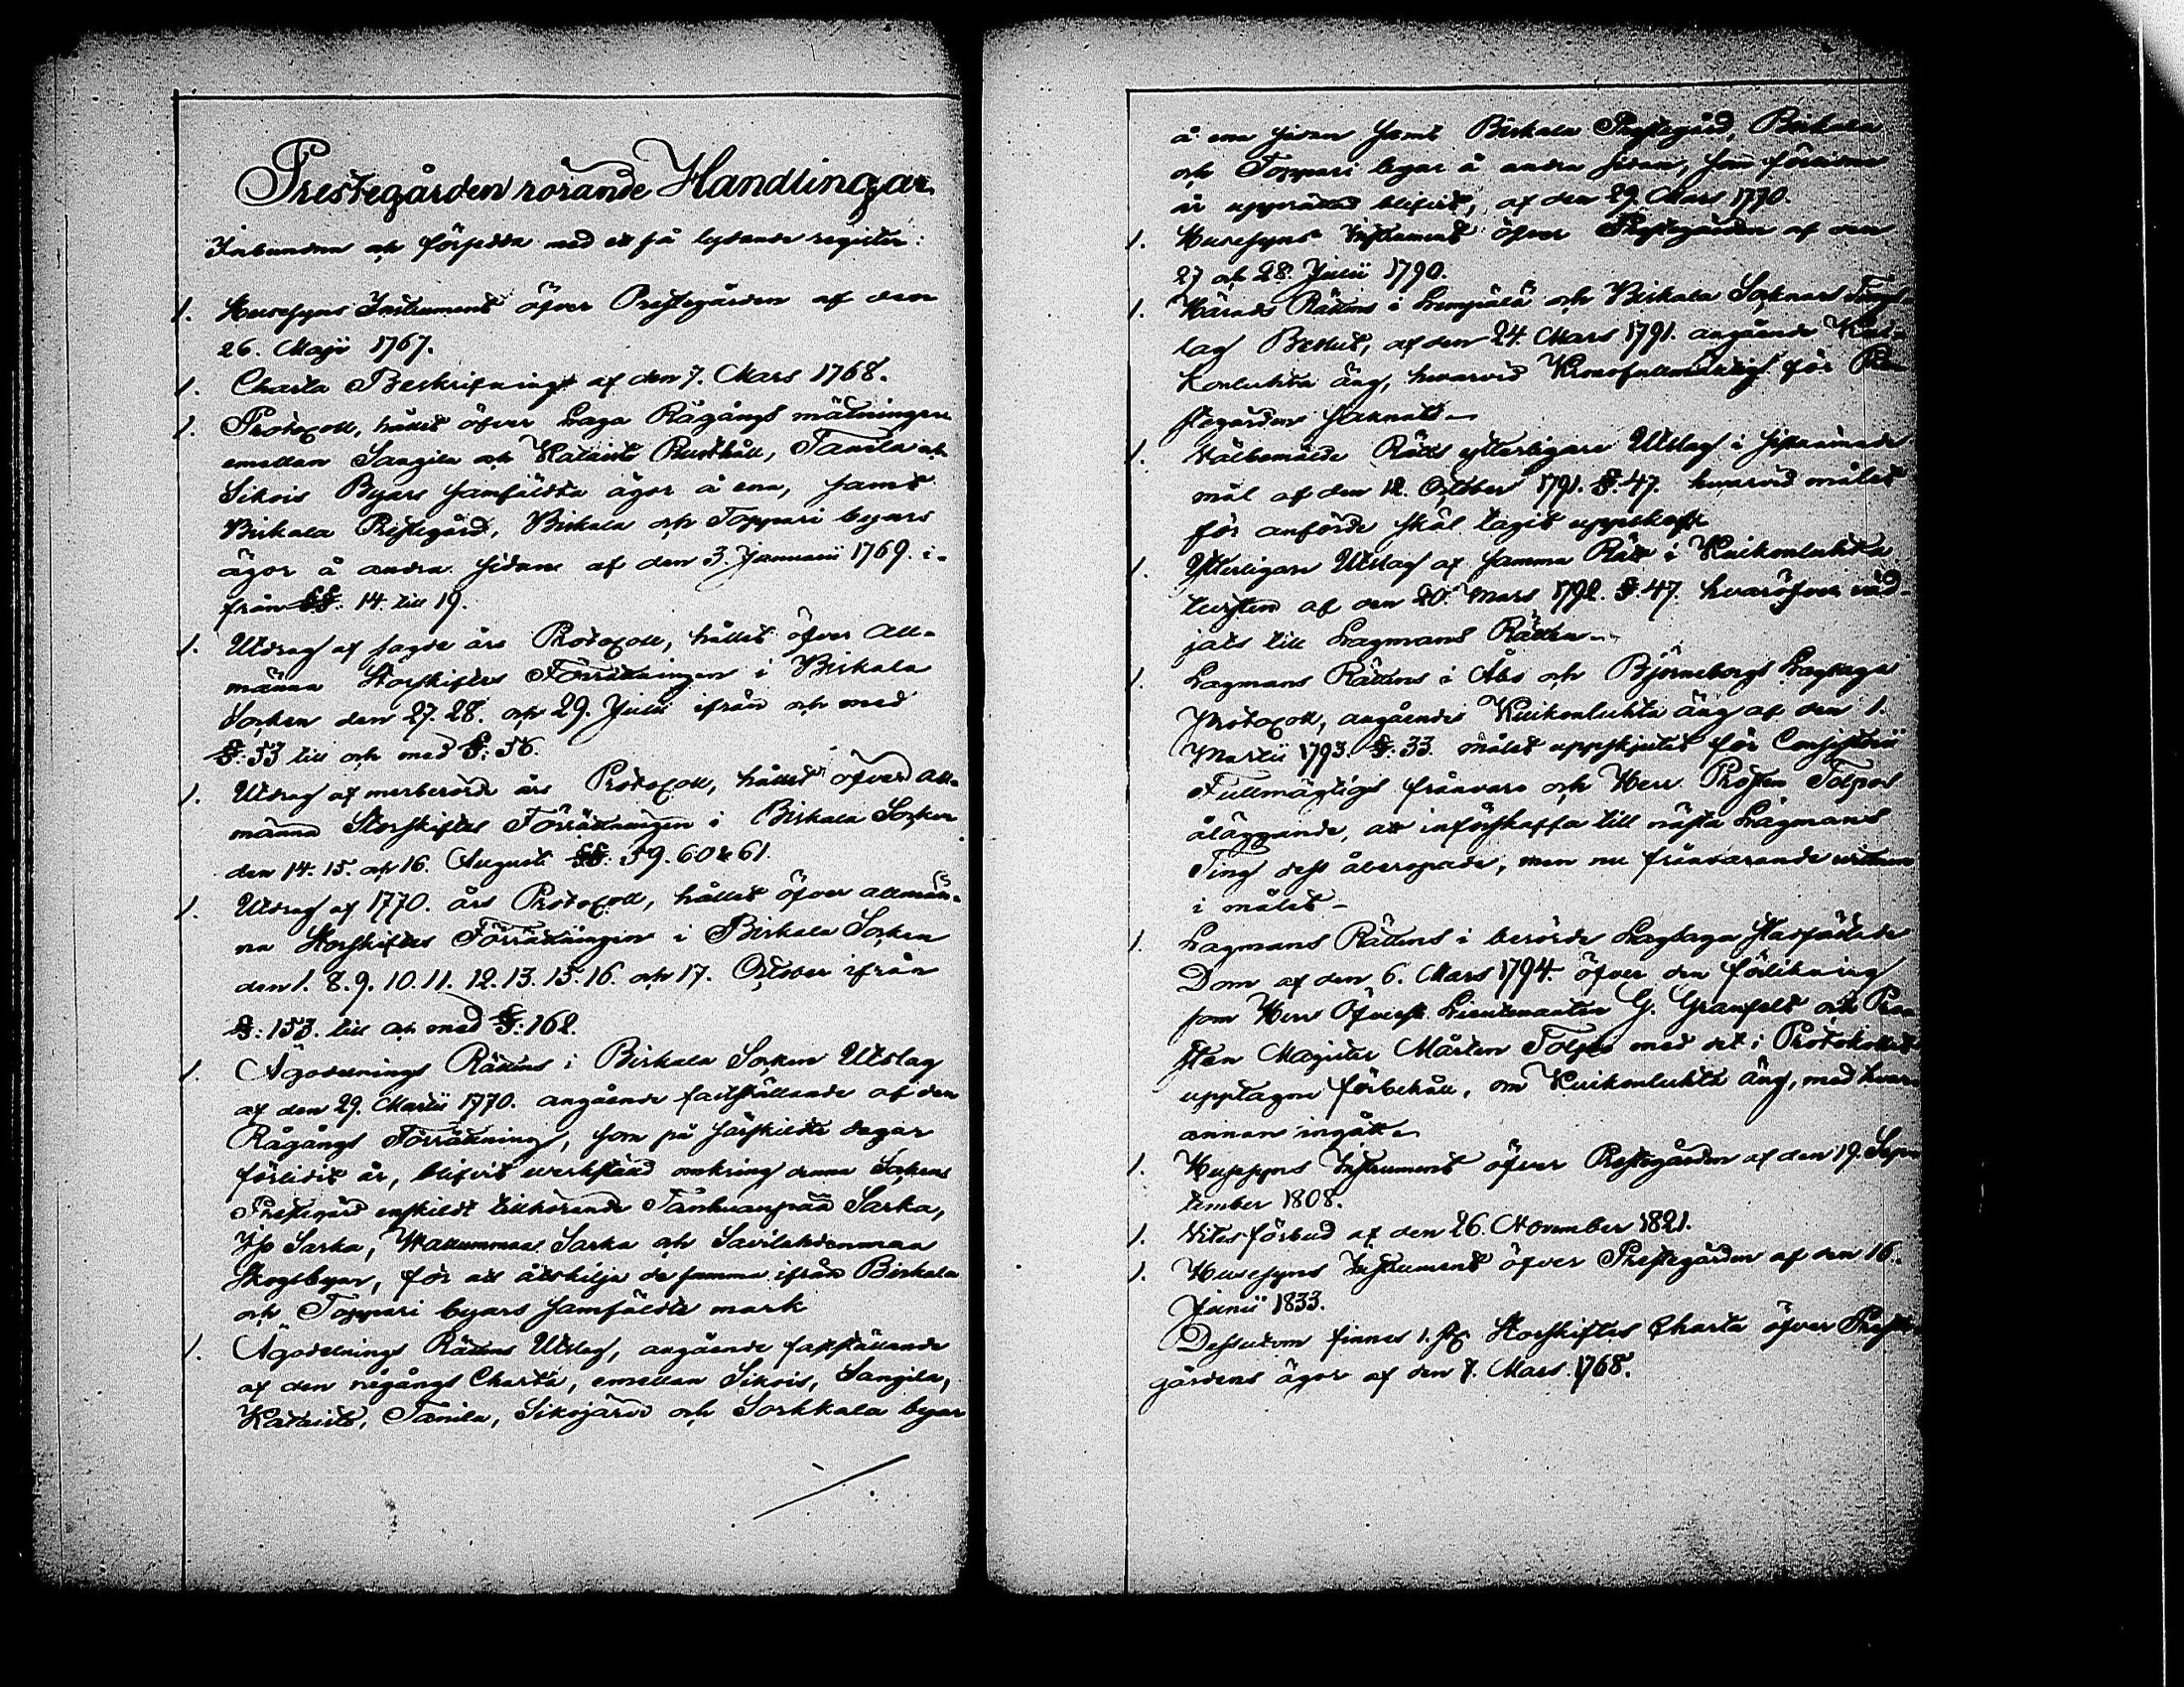 Prestegården rörande Handlingar
Inbundna och försedda med ett så lydande register:
1. Husesyns Instrument öfver Prestegården af den
26. Maji 1767.
1. Charta Beskrifning af den 7. Mars 1768.
1. Protocoll, hållit öfver Laga Rågångs mätningen
emellan Sangila och Kataisto Rusthåll, Tanila och
Sikois Byars samfäldta ägor å ena, samt
Birkala Prestegård, Birkala och Toppari byars
ägor å andra sidan af den 3. Januarii 1769. i-
från §§. 14. till 19.
1. Utdrag af sagde års Protocoll, hållit öfver All-
männa Storskiftes Förrättningen i Birkala
Socken den 27. 28. och 29. Julii ifrån och med
§. 53 till och med §. 56.
1. Utdrag af merberörde års Protocoll, hållit öfver All-
männa Storskiftes Förrättningen i Birkala Socken
den 14. 15. och 16. Augusti §§. 59. 60 & 61.
1. Utdrag af 1770. års Protocoll, hållit öfver allmän-
na Storskiftes Förrättningen i Birkala Socken
den 1. 8. 9. 10. 11. 12. 13. 15. 16. och 17. October ifrån
§. 153. till och med §. 162.
1. Ägodelnings Rättens i Birkala Socken Utslag
af den 29. Martii 1770. angående fastställande af den
Rågångs Förrättning, som på särskildte dagar
förlidit år, blifvit verkstäld omkring denna Sockens
Prestegård enskildt tillhörande Sarka,
Yso Sarka, Sarka och
Skogsbyar, för att åtskilja de samma ifrån Birkala
och Toppari byars samfäldte mark
1. Ägodelnings Rättens Utslag, angående fastställande
af den rågångs Charta, emellan Sikois, Sangila,
Kataisto, Tanila, Sikojärvi och Sorkkala byar
å ena sidan samt Birkala Prestegård, Birkala
och Toppari byar å andra sidan, som förlidne
år upprättad blifvit, af den 29. Mars 1770.
1. Husesyns Instrument öfver Prestegården af den
27 och 28. Julii 1790.
1. Härads Rättens i Lempälä och Birkala Socknars Tings-
lag Beslut, af den 24. Mars 1791. angående Kui-
konluhta äng, hvarvid Kronofullmäktig för Pre-
stegården saknats
1. Välbemälde Rätts ytterligare Utslag i sistnämnde
mål af den 12. October 1791. §. 47. hvarvid målet
för anförde skäl tagit uppskof
1. Ytterligare Utslag af samma Rätt i Kuikonluhta
tvisten af den 20. Mars 1792. §. 47. hvaröfver väd-
jats till Lagmans Rätten
1. Lagmans Rättens i Åbo och Björneborgs Lagsaga
Protocoll, angående Kuikonluhta äng af den 1.
Martii 1793. §. 33. målet uppskjutet för Consistorii
Fullmägtigs frånvaro och Herr Prosten Tolpos
åläggande, att införskaffa till nästa Lagmans
Ting dess åberopade, men nu frånvarande vittnen
i målet
1. Lagmans Rättens i berörde Lagsaga stadfästade
Dom af den 6. Mars 1794. öfver den förlikning
som Herr Öfverste Lieutenanten G. Granfelt och Pro-
sten Magister Mårten Tolpo med det i Protokollet
upptagne förbehåll, om Kuikonluhta äng, med hvar-
annan ingått
1. Husesyns Instrument öfver Prestegården af den 19. Sep-
tember 1808.
1. Vitesförbud af den 26. November 1821.
1. Husesyns Instrument öfver Prestegården af den 16.
Junii 1833.
Dessutom finnes 1. st. Storskiftes Charta öfver Preste-
gårdens ägor af den 7. Mars 1768.